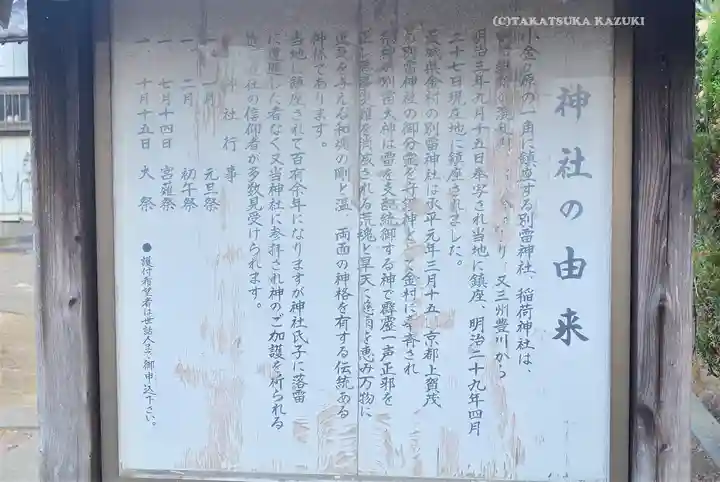 (C)TAKATSUKA KAZUKI
神社の由来
小金ヶ原の一角に鎮座する別雷神社、稲荷神社は、
又三州豊川から
明治三年九月十五日奉安され当地に鎮座、明治二十九年四月
二十七日現在地に鎮座されました。
茨城県金村の別雷神社は承平元年三月十五日京都上賀茂
別雷神社の御分霊を
金村に奉斎され
別雷大神は雷を支配統御する神で霹靂一声正邪を
正し悪疫災難を消滅される荒魂と旱天に慈雨を恵み万物に
恵を与える和魂の剛と温、両面の神格を有する伝統ある
御神であります。
当地に鎮座されて百有余年になりますが神社氏子に落雷
に遭遇した者なく又当神社に参拝され神のご加護を祈られる
神社の信仰者が多数見受けられます。
神社行事
一、一月 元旦祭
一、二月 初午祭
一、七月十四日 宮薙祭
一、十月十五日 大祭
●護符希望者は世話人まで御申込下さい。